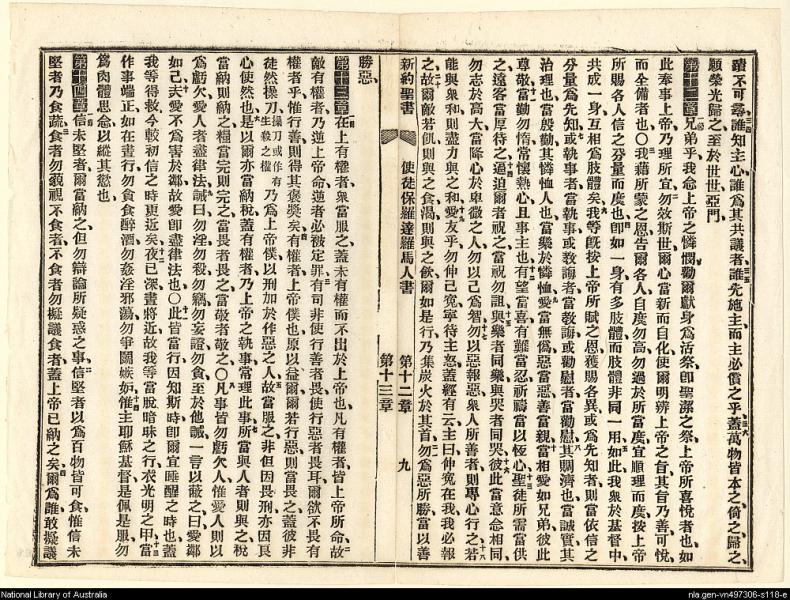 蹟不可尋誰知主心誰爲其共議者誰先施主而主必償之乎蓋萬物皆本之倚之歸之
願榮光歸之至於世世亞門
第十二章兄弟乎我念上帝之憐憫勸爾獻身爲活祭卽聖潔之祭上帝所喜悅者也如
此奉事上帝乃理所宜勿效斯世爾心當新而自化使爾明辨上帝之旨其旨乃善可悅
而全備者也〇我藉所蒙之恩吿爾各人自度勿高過於所當度宜順理而度按上帝
所賜各人信之分量而度也卽如一身有多肢體而肢體非同一用如此我衆於基督中
共成一身互相爲肢體矣我等旣按上帝所賦之恩獲賜各異或爲先知者則當依信之
分量爲先知或執事者當執事或敎誨者當敎誨或勸慰者當勸慰其賙濟也當誠實其
治理也當殷勤其憐恤人也當樂於憐恤愛當無僞惡當惡善當親當相愛如兄弟彼此
尊敬當勤勿惰常懷熱心且事主也有望當喜有難當忍祈禱當以恆心聖徒所需當供
之遠客當厚待之逼迫爾者祝之當祝勿詛與樂者同樂與哭者同哭彼此當意念相同
勿志於高大當降心於卑微之人勿以己爲智勿以惡報惡衆人所善者則專心行之若
能與衆和則盡力與之和愛友乎勿伸己寃寧待主怒蓋經有云主曰伸寃在我我必報
之故爾敵若飢則與之食渴則與之飲爾如是行乃集炭火於其首勿爲惡所勝當以善
新約聖書 使徒保羅達羅馬人書 第十二章 第十三章 九
勝惡
第十三章在上有權者衆當服之蓋未有權而不出於上帝也凡有權者皆上帝所命故
敵有權者乃逆上帝命逆者必被定罪有司非使行善者畏使行惡者畏耳爾欲不畏有
權者乎惟行善則得其褒獎矣有權者上帝僕也原以益爾爾若行惡則當畏之蓋彼非
徒然操刀操刀或作有生殺之權乃爲上帝僕以刑加於作惡之人故當服之非但因畏刑亦因良
心使然也是以爾亦當納稅蓋有權者乃上帝之執事常理此事所當與人者則與之稅
當納則納之糧當完則完之當畏者畏之當敬者敬之〇凡事皆勿虧欠人惟愛人則以
爲虧欠愛人者盡律法誡曰勿淫勿殺勿竊勿妄證勿貪至於他誡一言以蔽之曰愛鄰
如己夫愛不爲害於鄰故愛卽盡律法也〇此皆當行因知斯時卽爾宜睡醒之時也蓋
我等得救今較初信之時更近矣夜已深晝將近故我等當脫暗昧之行衣光明之甲當
作事端正如在晝行勿貪食醉酒勿姦淫邪蕩勿爭鬭嫉妒惟主耶穌基督是佩是服勿
爲肉體思念以縱其慾也
第十四章信未堅者爾當納之但勿辯論所疑惑之事信堅者以爲百物皆可食惟信未
堅者乃食蔬食者勿藐視不食者不食者勿擬議食者蓋上帝已納之矣爾爲誰敢擬議
National Library of Australia
nla.gen-vn497306-s118-e